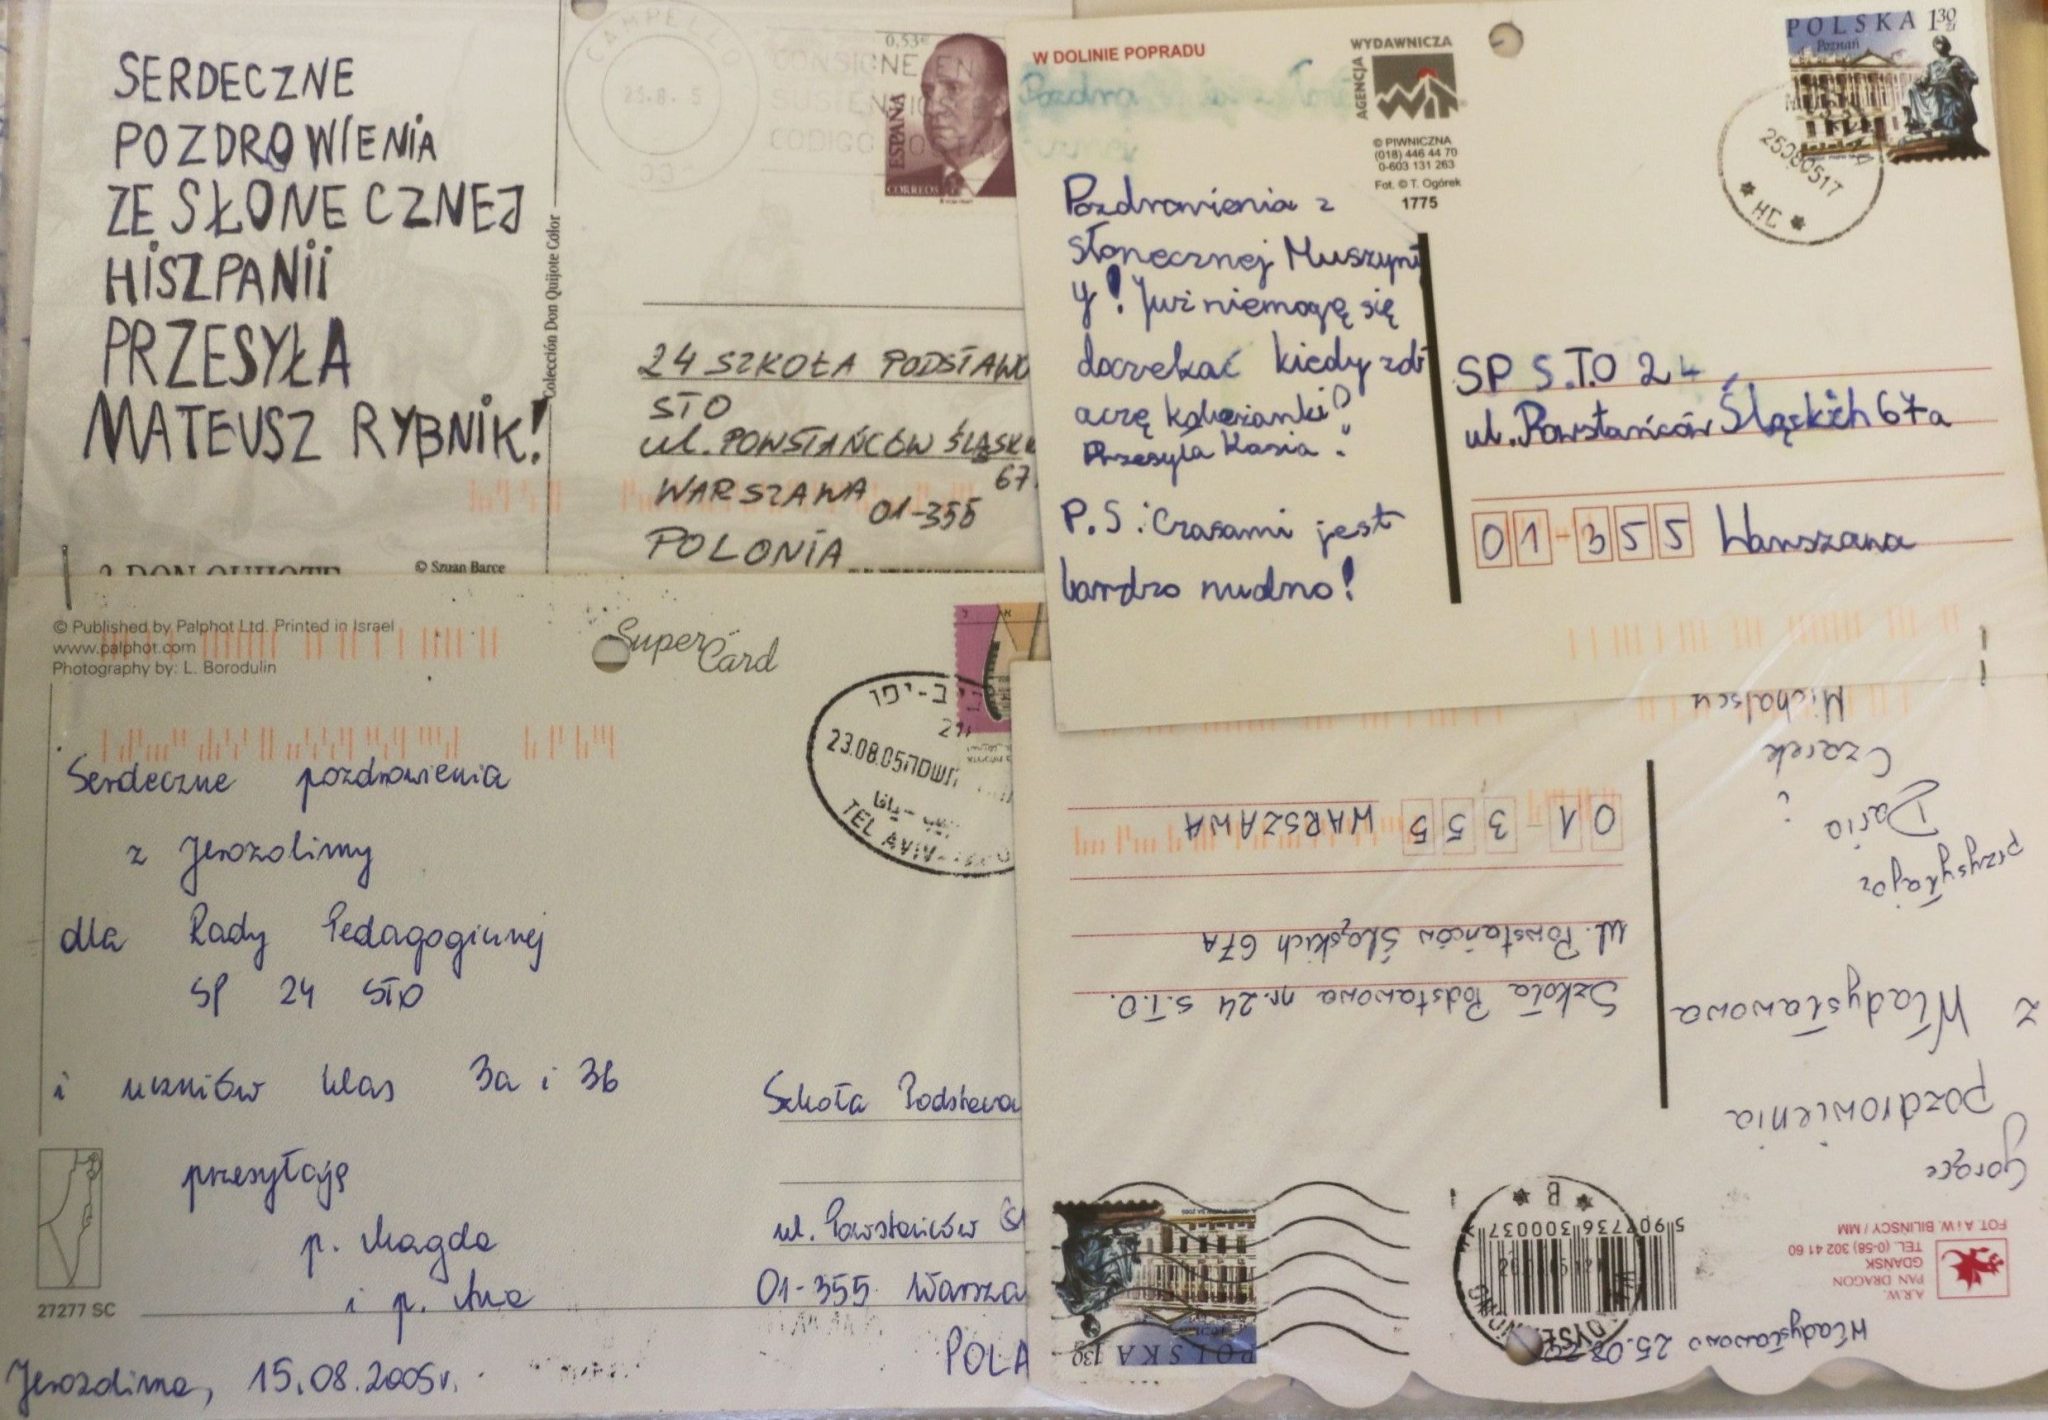 SERDECZNE
POZDROWIENIA
ZE SŁONECZNEJ
HISZPANII
PRZESYŁA
MATEUSZ RYBNIK!
Colección Don Quijote Color
DON QUIJOTE
© Szuan Barce
CAMPELLO
23.8. 5
CONSIGNE EN
CODIGO POSTAL
0,53€
ESPAÑA
CORREOS
24 SZKOŁA PODSTAWO
STO
ul. POWSTAŃCÓW ŚLĄSK
67
WARSZAWA
01-355
POLONIA
W DOLINIE POPRADU
AGENCJA
WYDAWNICZA
WiT
© PIWNICZNA
(018) 446 44 70
0-603 131 263
Fot. © T. Ogórek
1775
Pozdrowienia z
słonecznej Muszyn
y! Już niemogę się
doczekać kiedy zob
aczę koleżanki?
Przesyła Kasia
P.S: Czasami jest
bardzo nudno!
POLSKA 1,30 zł
Poznań
25080517
SP S.T.O 24
ul. Powstańców Śląskich 67a
01-355 Warszawa
© Published by Palphot Ltd. Printed in Israel
www.palphot.com
Photography by: L. Borodulin
Super Card
ב-יפו
23.08.05
התשס"ה
TEL AVIV-
Serdeczne pozdrowienia
z Jerozolimy
dla Rady Pedagogicznej
SP 24 STO
i uczniów klas 3a i 3b
przesyłają
p. Magda
i p. Ana
27277 SC
Jerozolima, 15.08.2005r.
Szkoła Podstawow
ul. Powstańców Śl
01-355 Warsza
POLA
A.R.W.
PAN DRAGON
GDAŃSK
TEL. (0-58) 302 41 60
FOT. A i W. BILIŃSCY / MM
Władysławowo 25.08.
Gorące
pozdrowienia
z Władysławowa
przysyłają
Daria
i
Czarek
Michalscy
5 907736 300037
POLSKA 1,30
Szkoła Podstawowa nr. 24 S.T.O.
ul. Powstańców Śląskich 67A
01-355 WARSZAWA